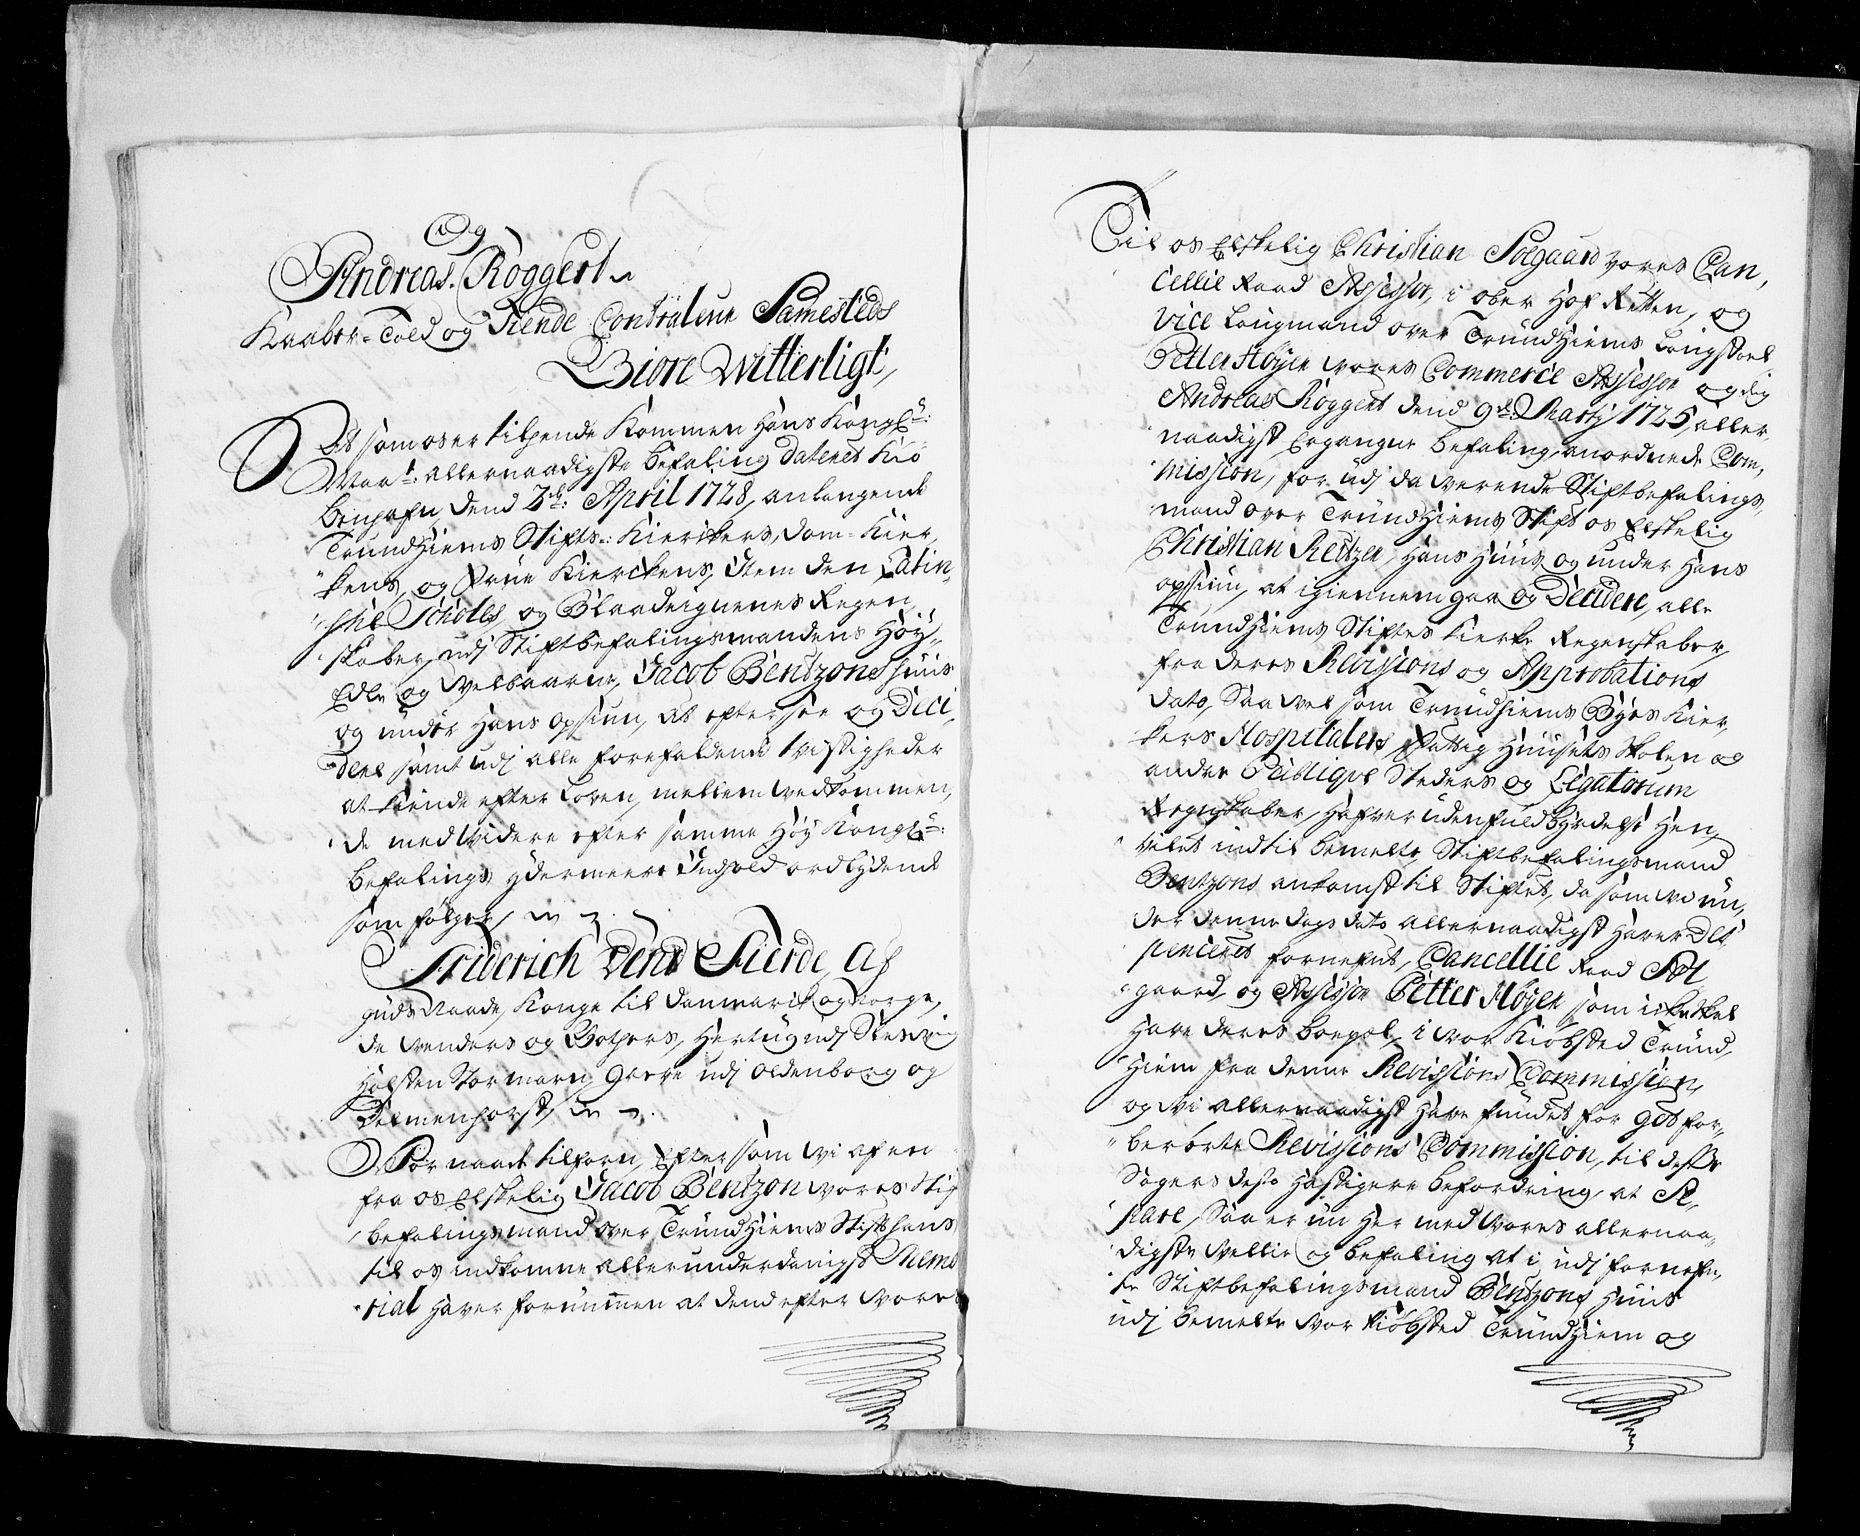 Og
Andreas Röggert
Kaaber-Told og Tiende Contraleur Samesteds
Giöre Witterligt,
At som os er tilhende Kommen Hans Kongl:
May:t: allernaadigste befaling dateret Kiö
benhafn dend 2de: April 1728, anlangende
Trundhiems Stifts Kierckers, dom-Kier,
kens, og Frue Kierckens, Item den Latin,
ske Scholes, og Blaadeignernes Regen,
skaber, udj Stiftbefalingsmandens Höy,
Edle og Velbaarne, Jacob Bentzons huus
og under Hans opsiun, at eftersee og Deci,
dere samt udj alle forefaldende tvistigheder
at kiende efter Loven, mellem Vedkommen,
de med Videre efter samme Höy Kongl:
befalings ydermeere Indhold ordlydende
som fölger,
Friderich dend Fierde, Af
Guds Naade, Konge til Danmarck og Norge,
de Venders og Gothers, Hertug udj Slesvig
Holsten Stormarn, Greve udj Oldenborg og
Delmenhorst,
Vor naade tilforn, Eftersom Vi af en
fra os Elskelig Jacob Bentzon Vores Stift
befalingsmand over Trundhiems Stift hans
til os indkomne allerunderdanigst Memo
rial Haver fornummen at dend efter Vores
Til os Elskelig Christian Solgaard Vores Can,
cellie Raad Assessor, i ober Hof Retten, og
Vice Laugmand over Trundhiems Laugstoel
Petter Höyer Vores Commerce Assessor og dig
Andreas Röggert dend 9de Martj 1725, aller
naadigst Ergangne befaling, anordnede Com,
mission, for udj da verende Stiftbefalings,
mand over Trundhiems Stift os Elskelig
Christian Reitzer, Hans Huus og under Hans
opsiun, at igiennemgaa og Decidere, alle
Trundhiems Stiftes Kierke Regenskaber,
fra deres Revisions og Approbations
dato, Saavel som Trundhiems Byes Kier,
kers Hospitalers, Fattig Huusets Skolen og
andre Publique Steders og Legatorum
Regnskaber, Hafver uden fuldbyrdelse Hen,
vilet indtil bemelte Stiftbefalingsmand
Bentzons ankomst til Stiftet, da som Vi un,
der denne dags dato allernaadigst Haver Dis
penceret fornefnt, Cancellie Raad Sol
gaard, og Assessor Petter Höyer som icke skal
Have deres boepæl, i Vor Kiöbsted Trund,
hiem fra denne Revisions Commission,
og Vi allernaadigst Have fundet for got for,
berörte Revisions Commission, til desse
Sagers deste Hastigere befordring, at
Saa er nu Her med Vores allernaa,
digste Villie og befaling at i, udj fornefn,
te Stiftbefalingsmand Bentzons Huus
udj bemelte Vor Kiöbsted Trundhiem og